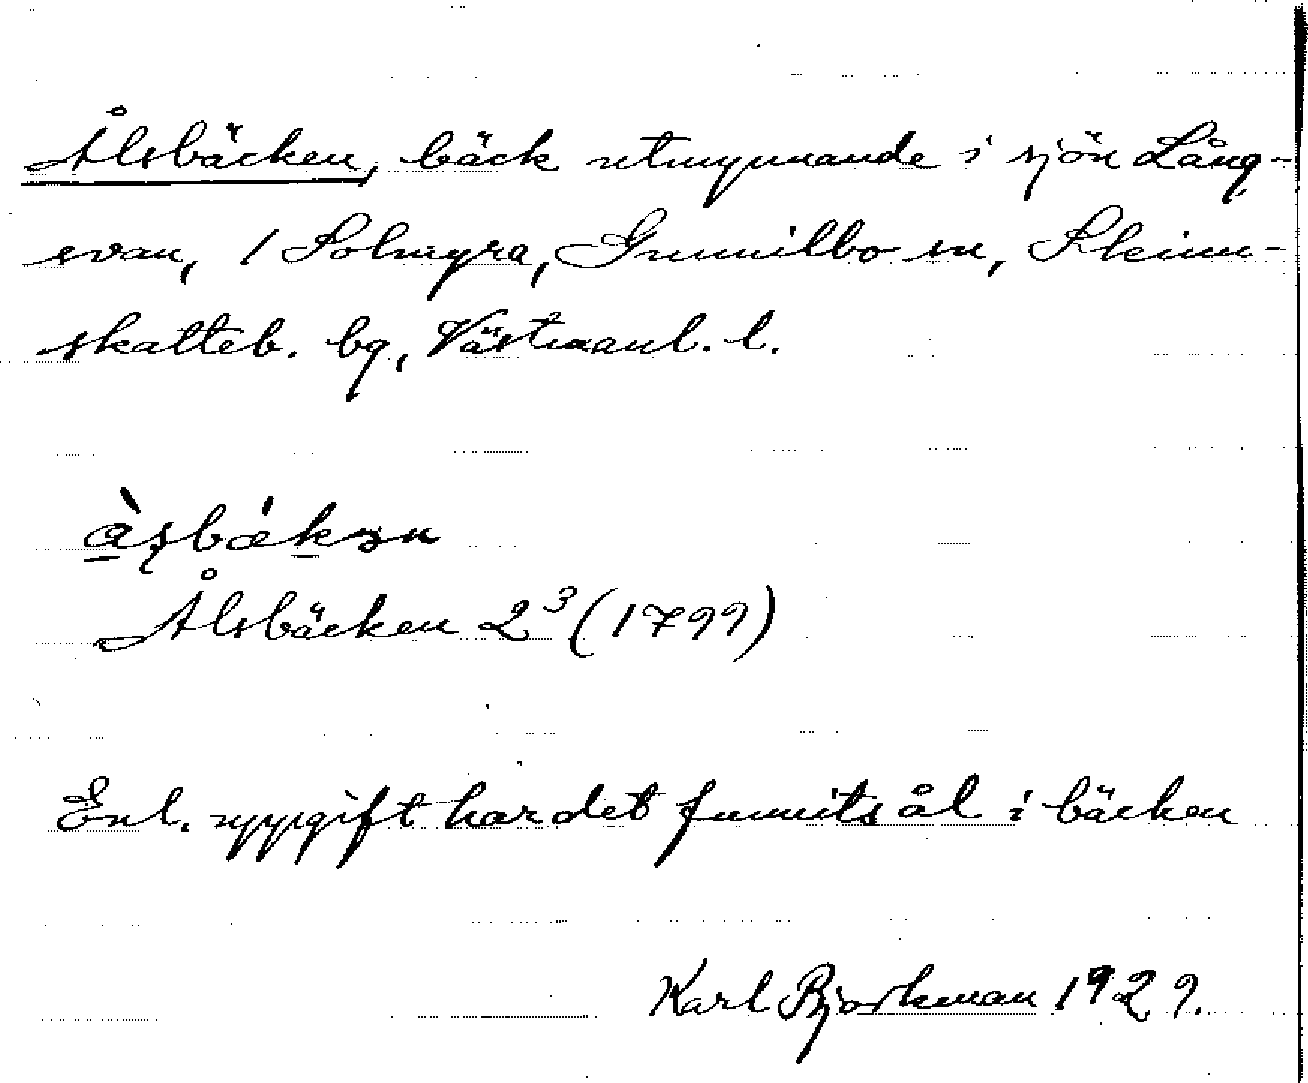 Ålsbäcken, bäck utmynnande i sjön Lång-
evan, / Solmyra, Gunnilbo sn, Skinn-
skatteb. bg, Västmanl. l.
å̀ṣbǽkən
Ålsbäcken 2³ (1799)
Enl. uppgift har det funnits ål i bäcken
Karl Bjorkman 1929.